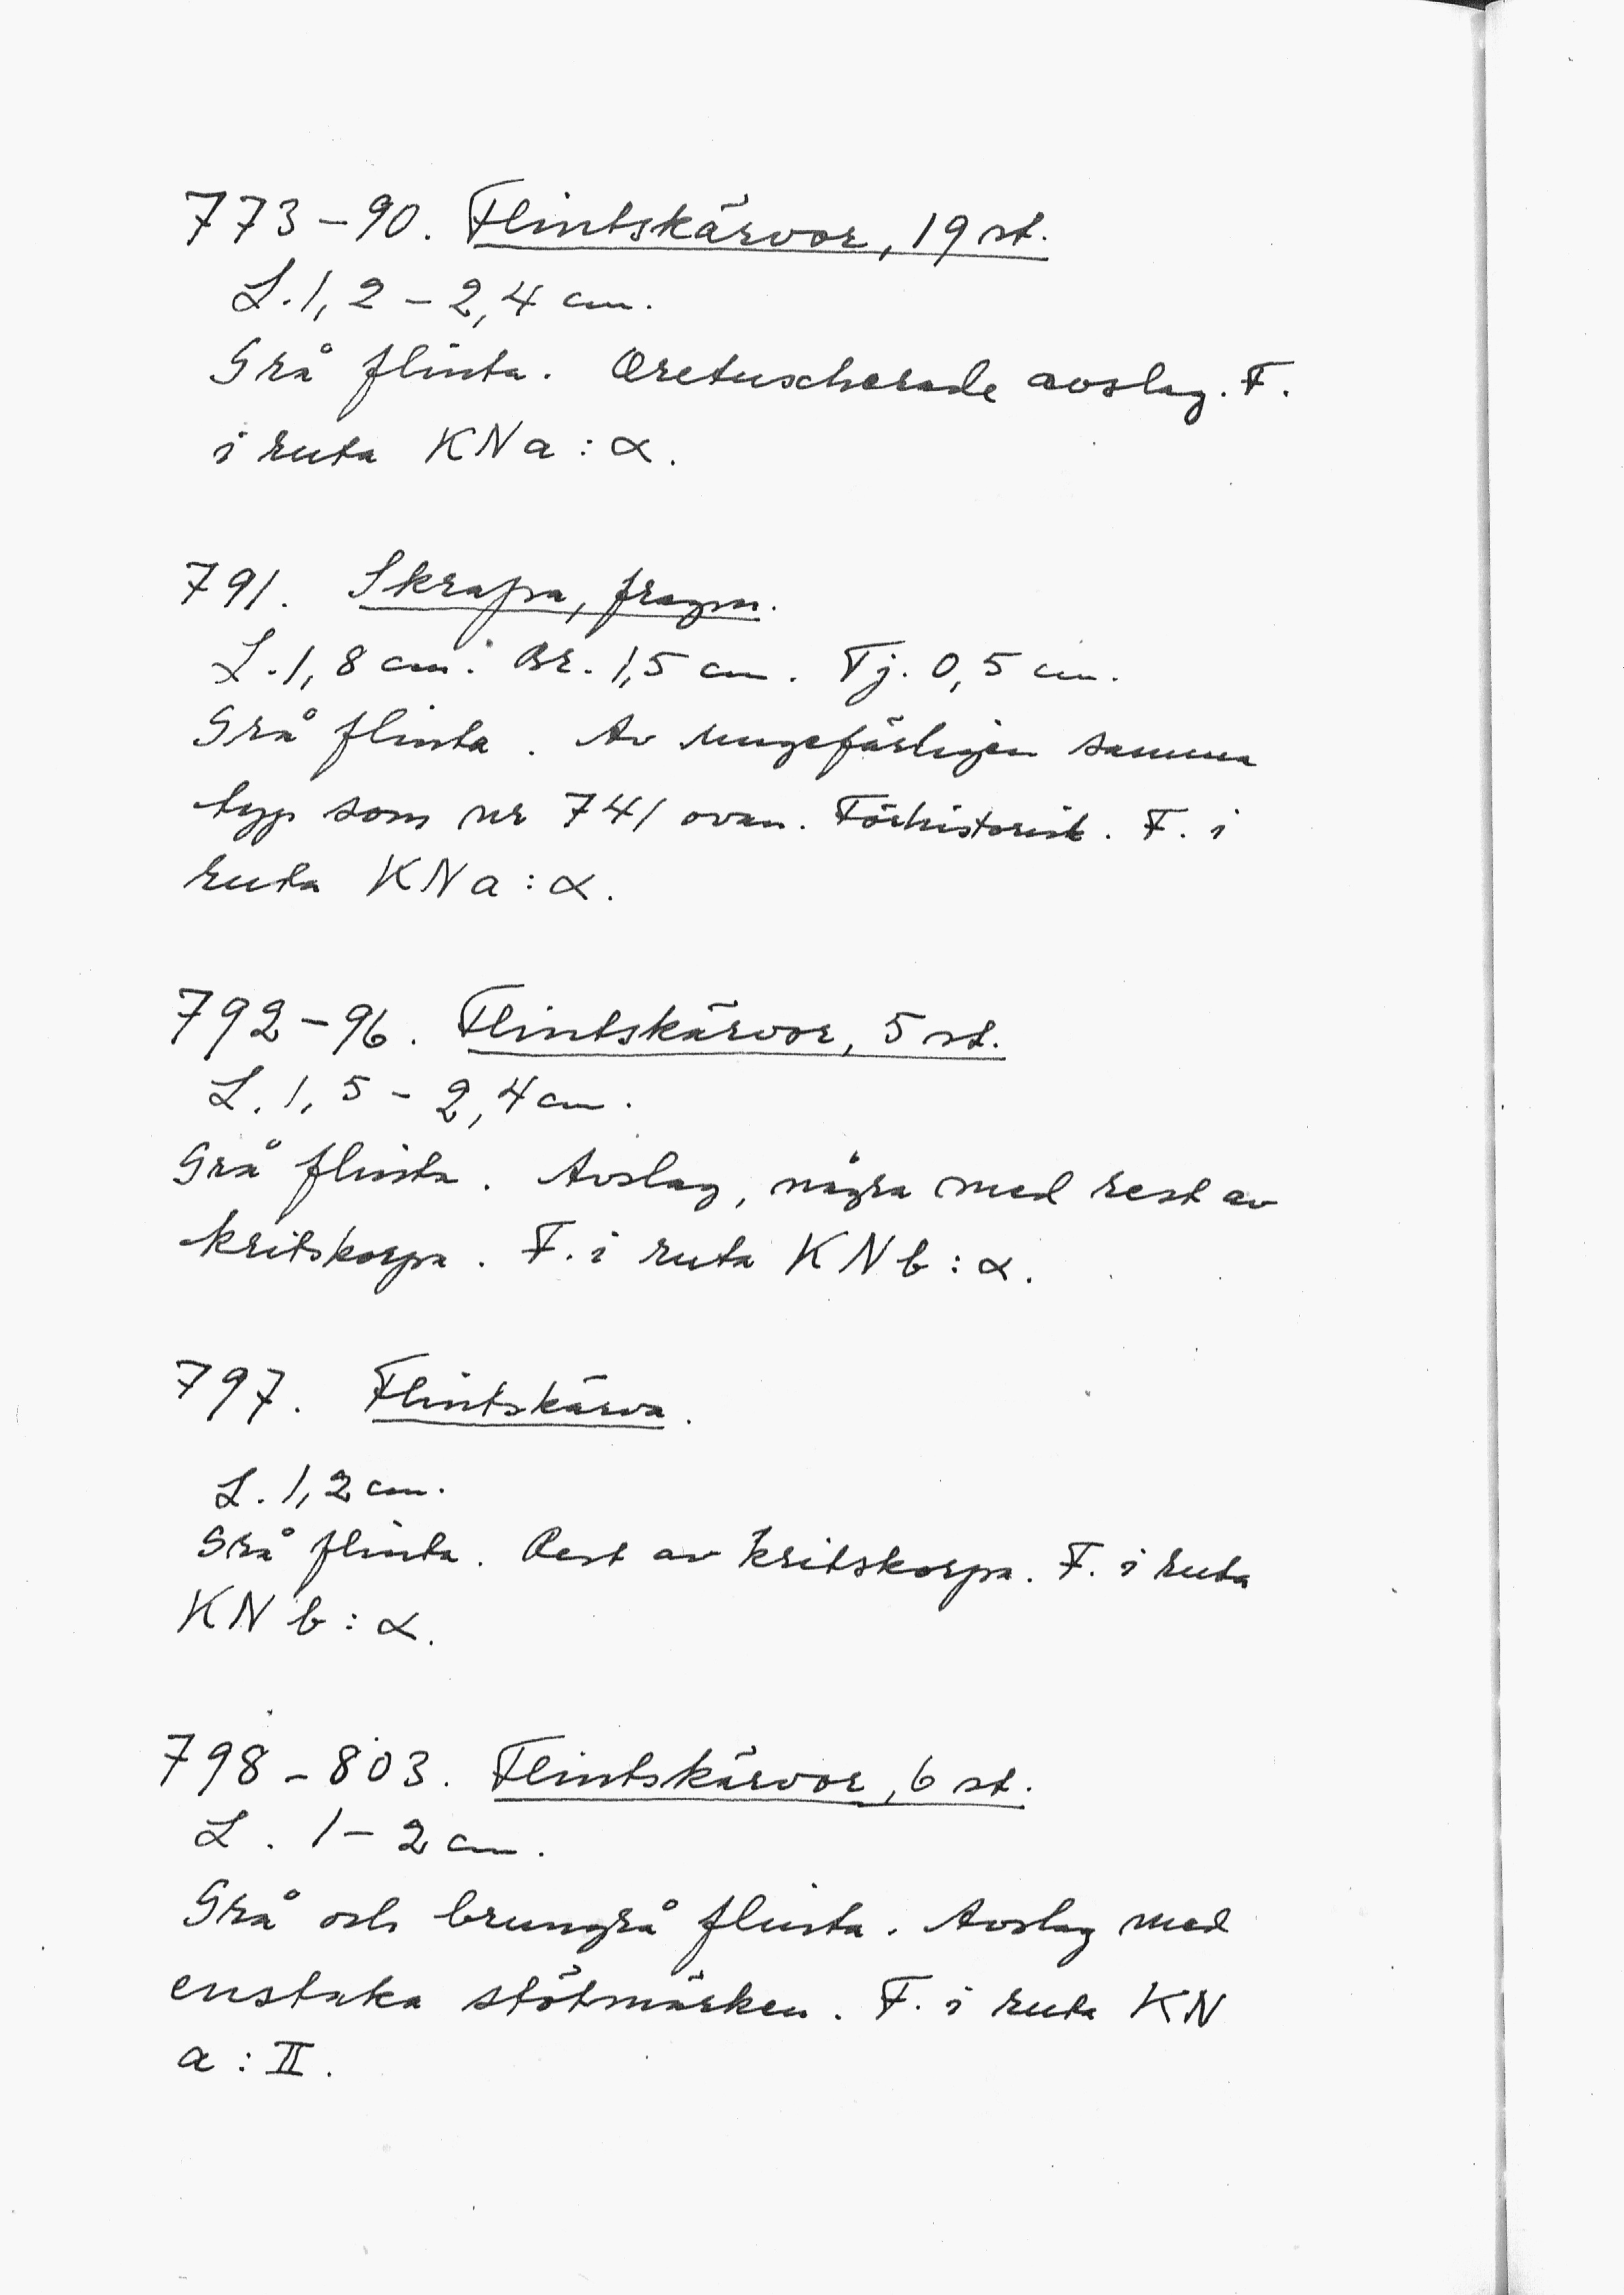 773-90. Flintskärvor, 19 st.
L. 1,2 - 2,4 cm.
Grå flinta. Oretuscherade avslag. F.
i ruta KN a : α.
791. Skrapa, fragm.
L. 1,8 cm. Br. 1,5 cm. Tj. 0,5 cm.
Grå flinta. Av ungefärligen samma
typ som nr 741 ovan. Förhistorisk. F. i
ruta KN a : α.
792-96. Flintskärvor, 5 st.
L. 1,5 - 2,4 cm.
Grå flinta. Avslag, några med rest av
kritskorpa. F. i ruta KN b : α.
797. Flintskärva.
L. 1,2 cm.
Grå flinta. Rest av kritskorpa. F. i ruta
KN b : α.
798-803. Flintskärvor, 6 st.
L. 1-2 cm.
Grå och brungrå flinta. Avslag med
enstaka stötmärken. F. i ruta KN
a : II.